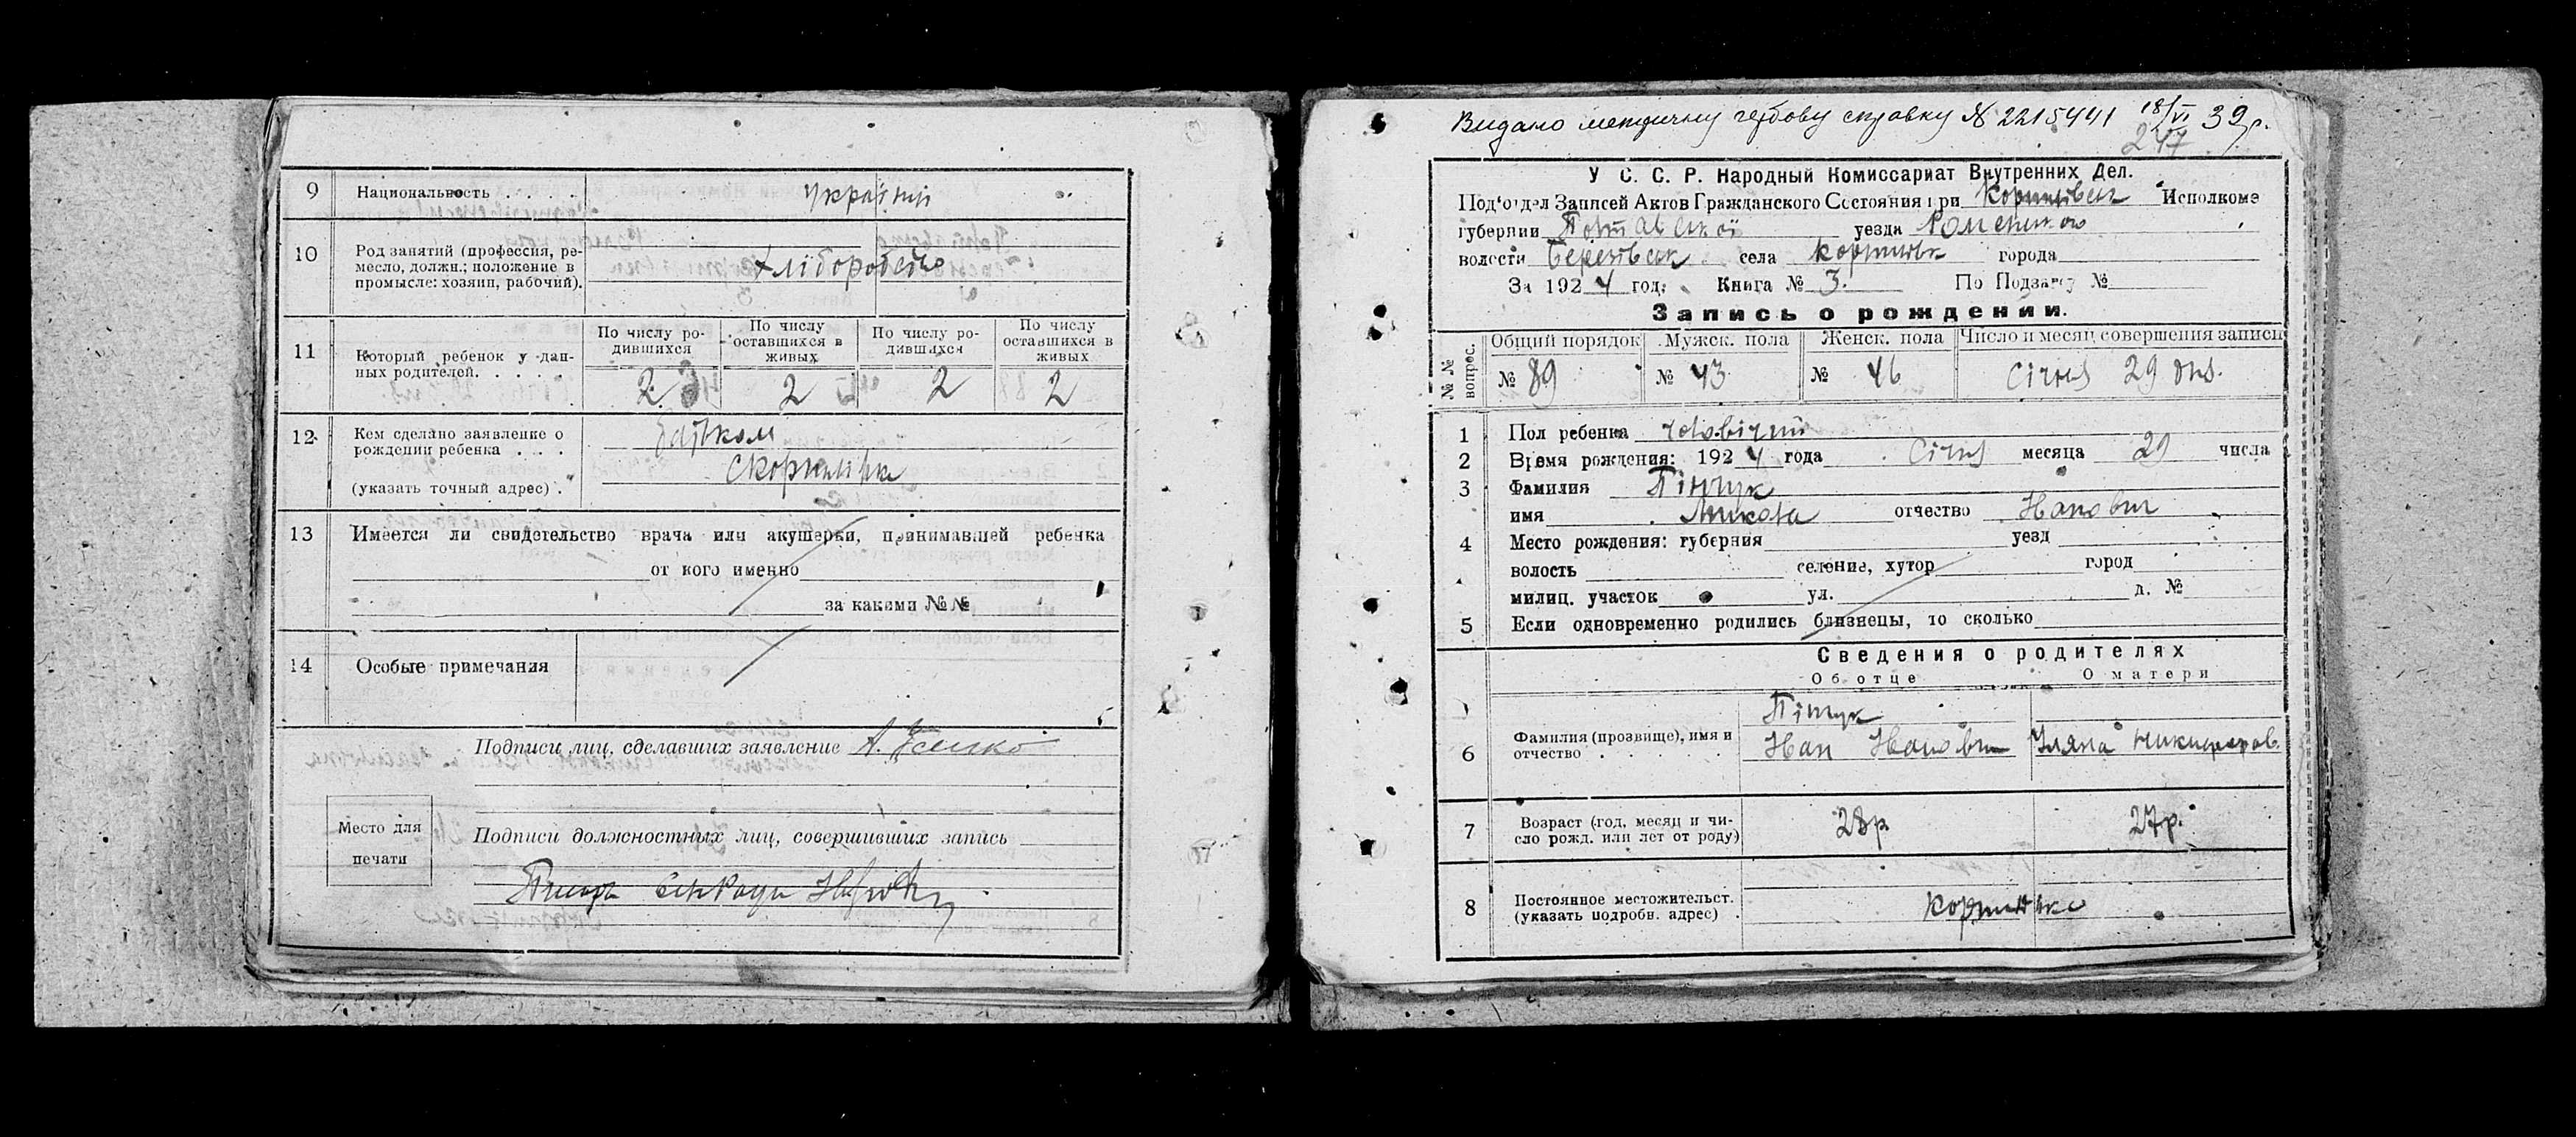 9 Национальность . . . . україні
10 Род занятий (профессия, ре-
месло, должн.; положение в
промысле: хозяин, рабочий). Хліборобство
11 Который ребенок у дан-
ных родителей. . . . . .
По числу ро-
дившихся
По числу
оставшихся в
живых
По числу ро-
дившихся
По числу
оставшихся в
живых
2 2 2 2
12 Кем сделано заявление о
рождении ребенка . . . батьком
(указать точный адрес) .
13 Имеется ли свидетельство врача или акушерки, принимавшей ребенка
от кого именно
за какими №№
14 Особые примечания
Подписи лиц, сделавших заявление
Место для
печати
Подписи должностных лиц, совершивших запись
Видано метричну гербову справку № 2215441 18/VI 39р.
247
У С. С. Р. Народный Комиссариат Внутренних Дел.
Под'отдел Записей Актов Гражданского Состояния при Исполкоме
губернии Полтавської уезда Роменського
волости села города
За 1924 год. Книга № 3. По Подзагу №
Запись о рождении.
№ № вопрос.
Общий порядок Мужск. пола Женск. пола Число и месяц совершения записи
№ 89 № 43 № 46 Січня 29 дня.
1 Пол ребенка чоловічий
2 Время рождения: 1924 года Січня месяца 29 числа
3 Фамилия
имя Микола отчество Іванович
4 Место рождения: губерния уезд
волость селение, хутор город
милиц. участок ул. д. №
5 Если одновременно родились близнецы, то сколько
Сведения о родителях
Об отце О матери
6 Фамилия (прозвище), имя и
отчество . . . . . Іван Іванович Уляна Никифоров.
7 Возраст (год, месяц и чи-
сло рожд. или лет от роду) 28р. 27р.
8 Постоянное местожительст.
(указать подробн. адрес) .